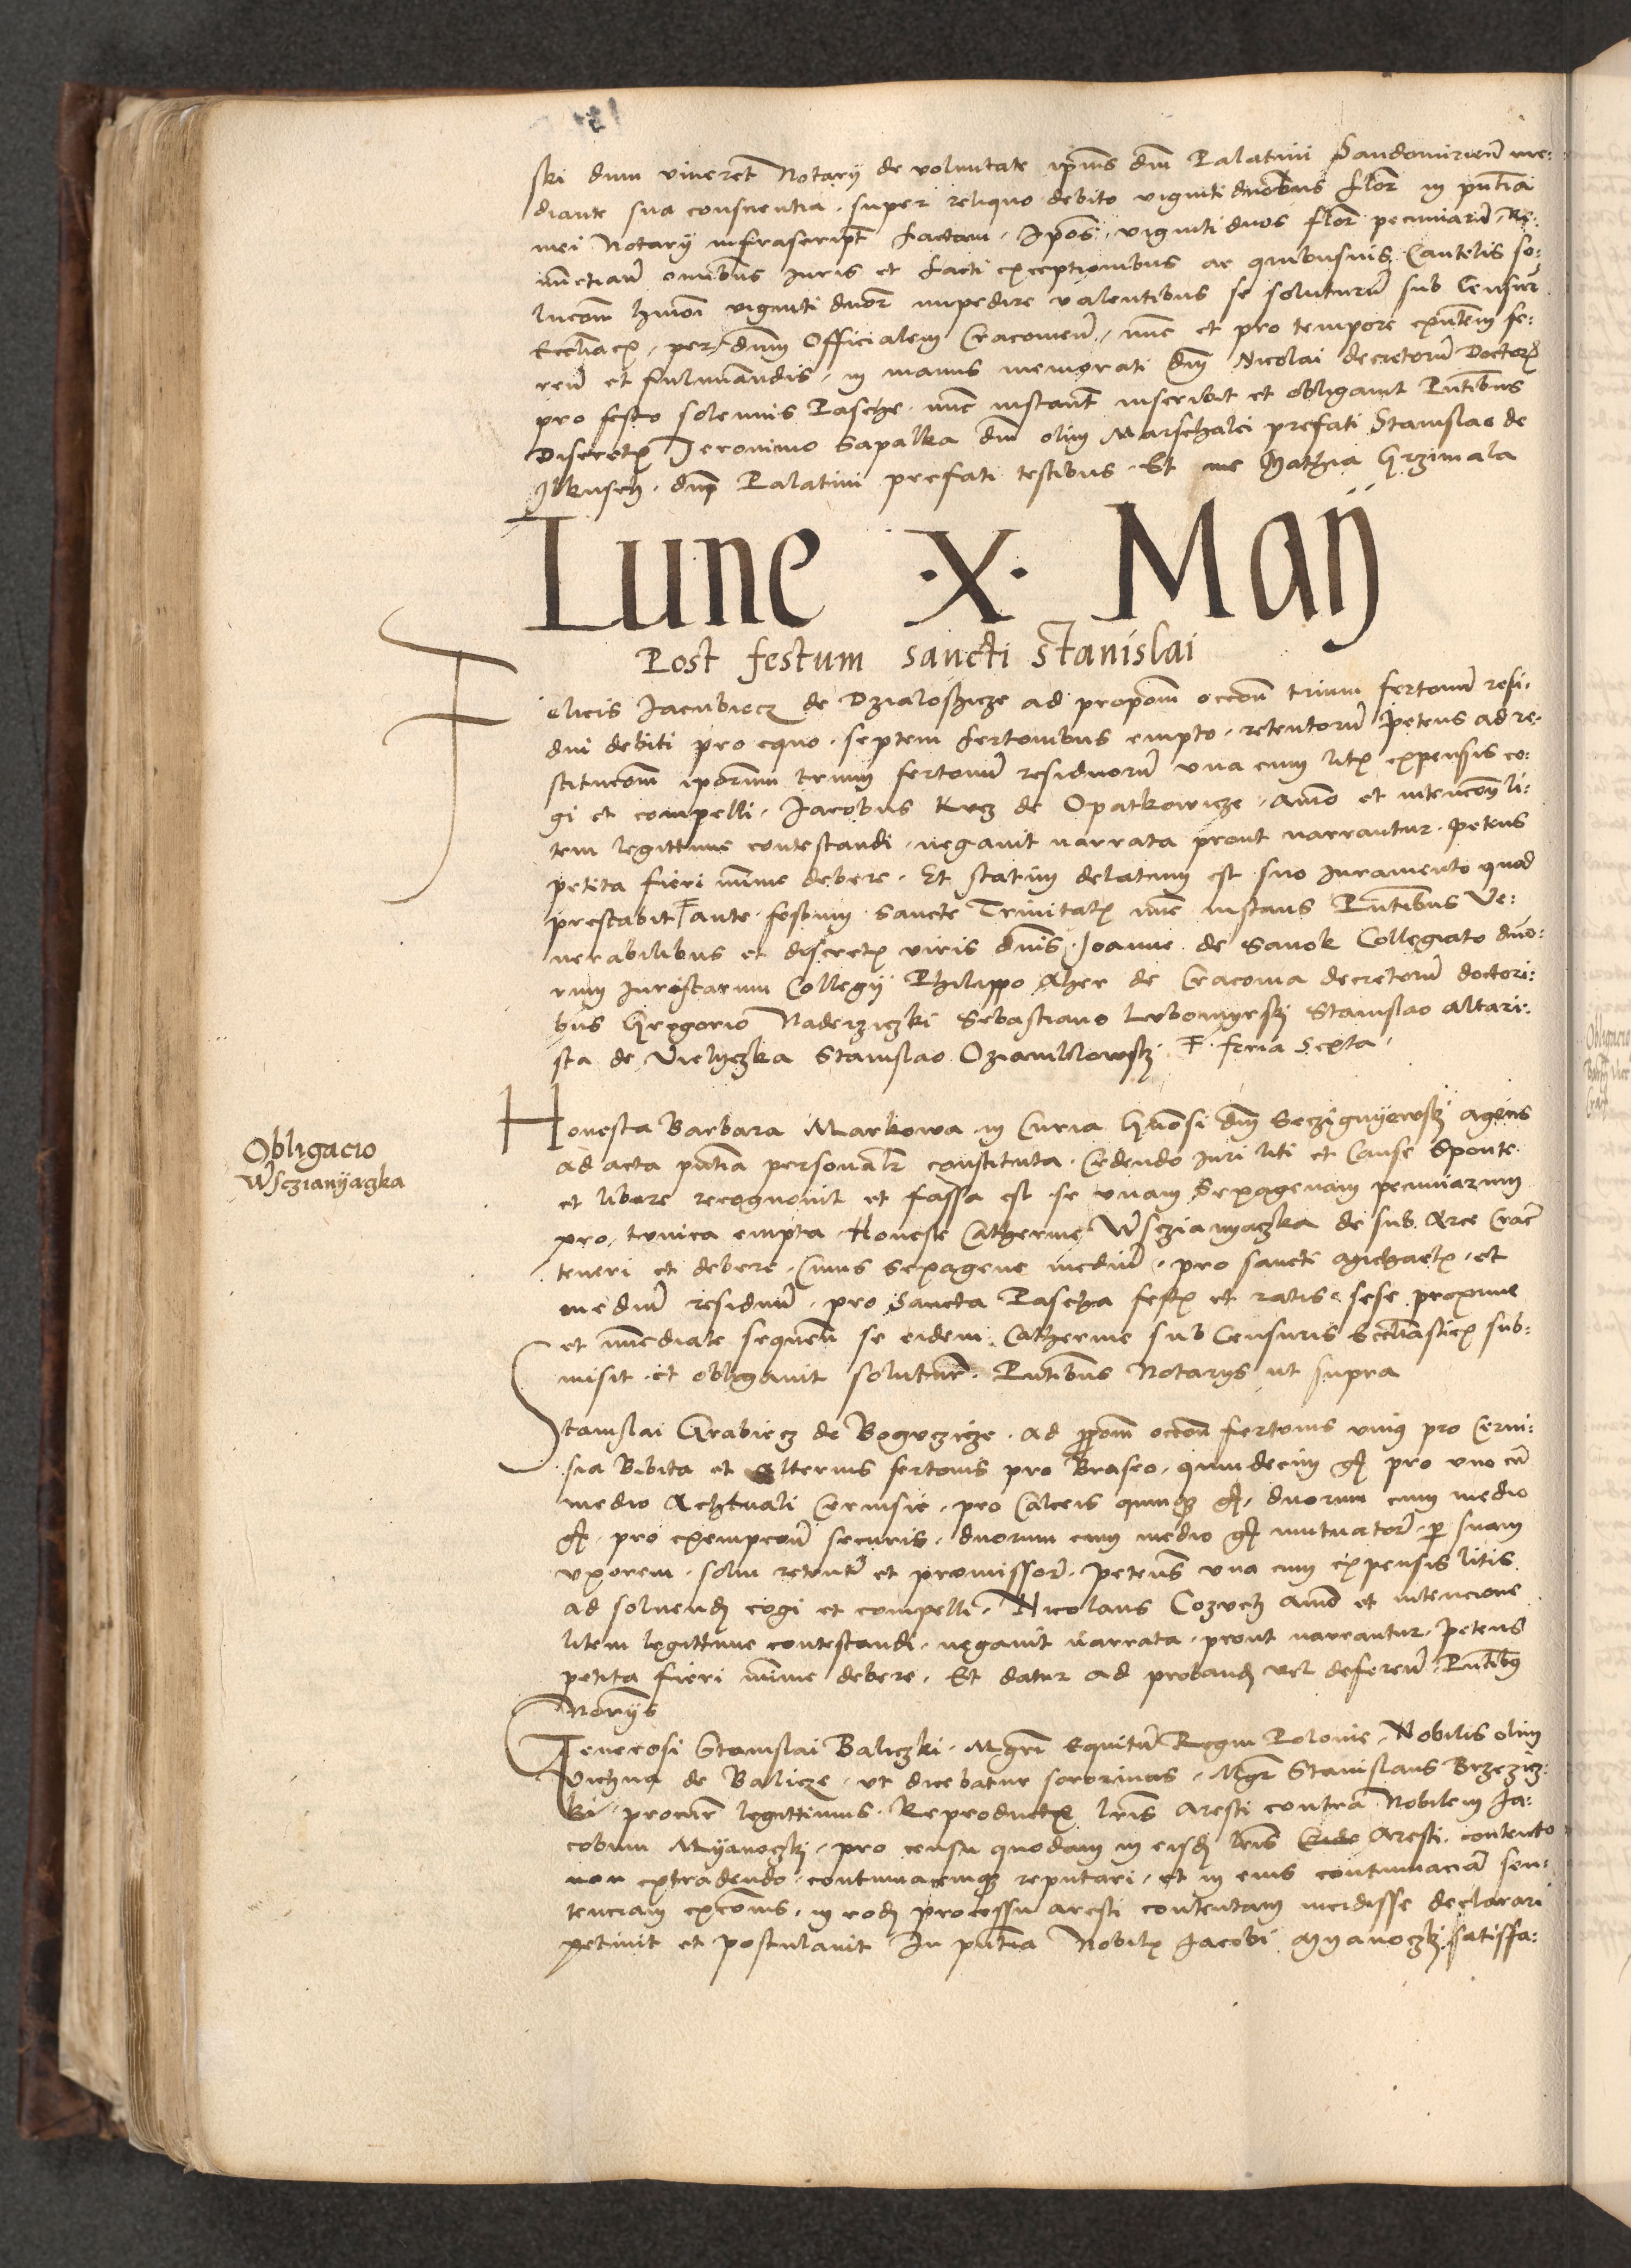 ski dum viveret Notarij de voluntate ipsius dni Palatini Sandomirien me:
diante sua conscientia super reliquo debito viginti duobus flor in pntia
mei Notarij infrascript factam Ipos viginti duos flor pecuniarum Re:
nunctians omnibus Iuris et facti exceptionibus ac quibusvis Cautelis so:
lucom hmoi viginti duor impedire valentibus se soluturum sub Censur
Ecctiacis per dnum Officialem Cracovien nunc et pro tempore exntem fe:
ren et fulminandis in manus memorati dni Nicolai decretorum Doctoris
pro festo solennis Pasche nunc instant inscribit et obligavit Pntibus
Discretis Jeronimo Sapalka dni olim Marschalci prefati Stanislao de
Ilkusch dni Palatini prefati testibus Et me Mathia Grzimala
Lune .X. Maij
Post festum sancti Stanislai
Felicis Jacubiecz de Dzialoschicze ad propom occon trium fertonum resi:
dui debiti pro equo septem fertonibus empto retentorum petens ad re:
stitucom iporum trium fertonum residuorum vna cum litis expensis co:
gi et compelli Jacobus Kucz de Opatkowicze animo et intencom li:
tem legittime contestandi negavit narrata prout narrantur petens
petita fieri minime debere Et statim delatum est suo Iuramento quod
prestabit F ante festum Sancte Trinitatis nunc instans Pntibus Ve:
nerabilibus et discretis viris dnis Joanne de Sanok Collegiato duo:
rum Juristarum Collegij Philippo Aher de Cracovia decretorum doctori:
bus Gregorio Naderziczki Sebastiano Lubomyrsky Stanislao altari:
sta de Vielyczka Stanislao Oziamblowsky F feria Sexta
Obligacio
Wscziányaczka
Honesta Barbara Markowa in Curia Gnosi dni Seczignyewsky agens
ad acta pntia personalr constituta Cedendo Iuri liti et Cause Sponte
et libere recognovit et fassa est se vnam Sexagenam pecuniarum
pro tunica empta Honeste Catherine Wscziányaczka de sub Arce Crac
teneri et debere Cuius sexagene medium pro sancti Michaelis et
medium residuum pro Sancta Pascha festis et ratis sese proxime
et immediate sequen se eidem Catherine sub Censuris Ecctiasticis sub:
misit et obligavit soluturam Pntibus Notarijs ut supra
Stanislai Grabiecz de Boguczicze ad propom occon fertonis vnius pro Cervi:
sia Bibita et alterius fertonis pro Braseo quindecim gr pro vno cum
medio Achtuali Cervisie pro Calceis quinque gr duorum cum medio
gr pro exempcone securis duorum cum medio gr mutuator per suam
vxorem solui retentor et promissor petens vna cum expensis litis
ad solvend cogi et compelli Nicolaus Cozuch animo et intencione
litem legittime contestandi negavit narrata prout narrantur petens
petita fieri minime debere Et datur ad proband vel deferen Pntibus
Norijs
Generosi Stanislai Baliczki Mgri Equitum Regni Polonie Nobilis olim
Vichna de Balicze ut dicebatur sororinus Mgr Stanislaus Brzezicz:
ki procur legittimus Reproductis lris aresti contra Nobilem Ja:
cobum Myanoczky pro censu quodam in eisd lris aresti contento
non extradendo contumacemque reputari et in eius contumaciam sen:
tenciam excois in eod processu aresti contentam incidisse declarari
petivit et postulavit In pntia Nobilis Jacobi Myanoczky satisfa: